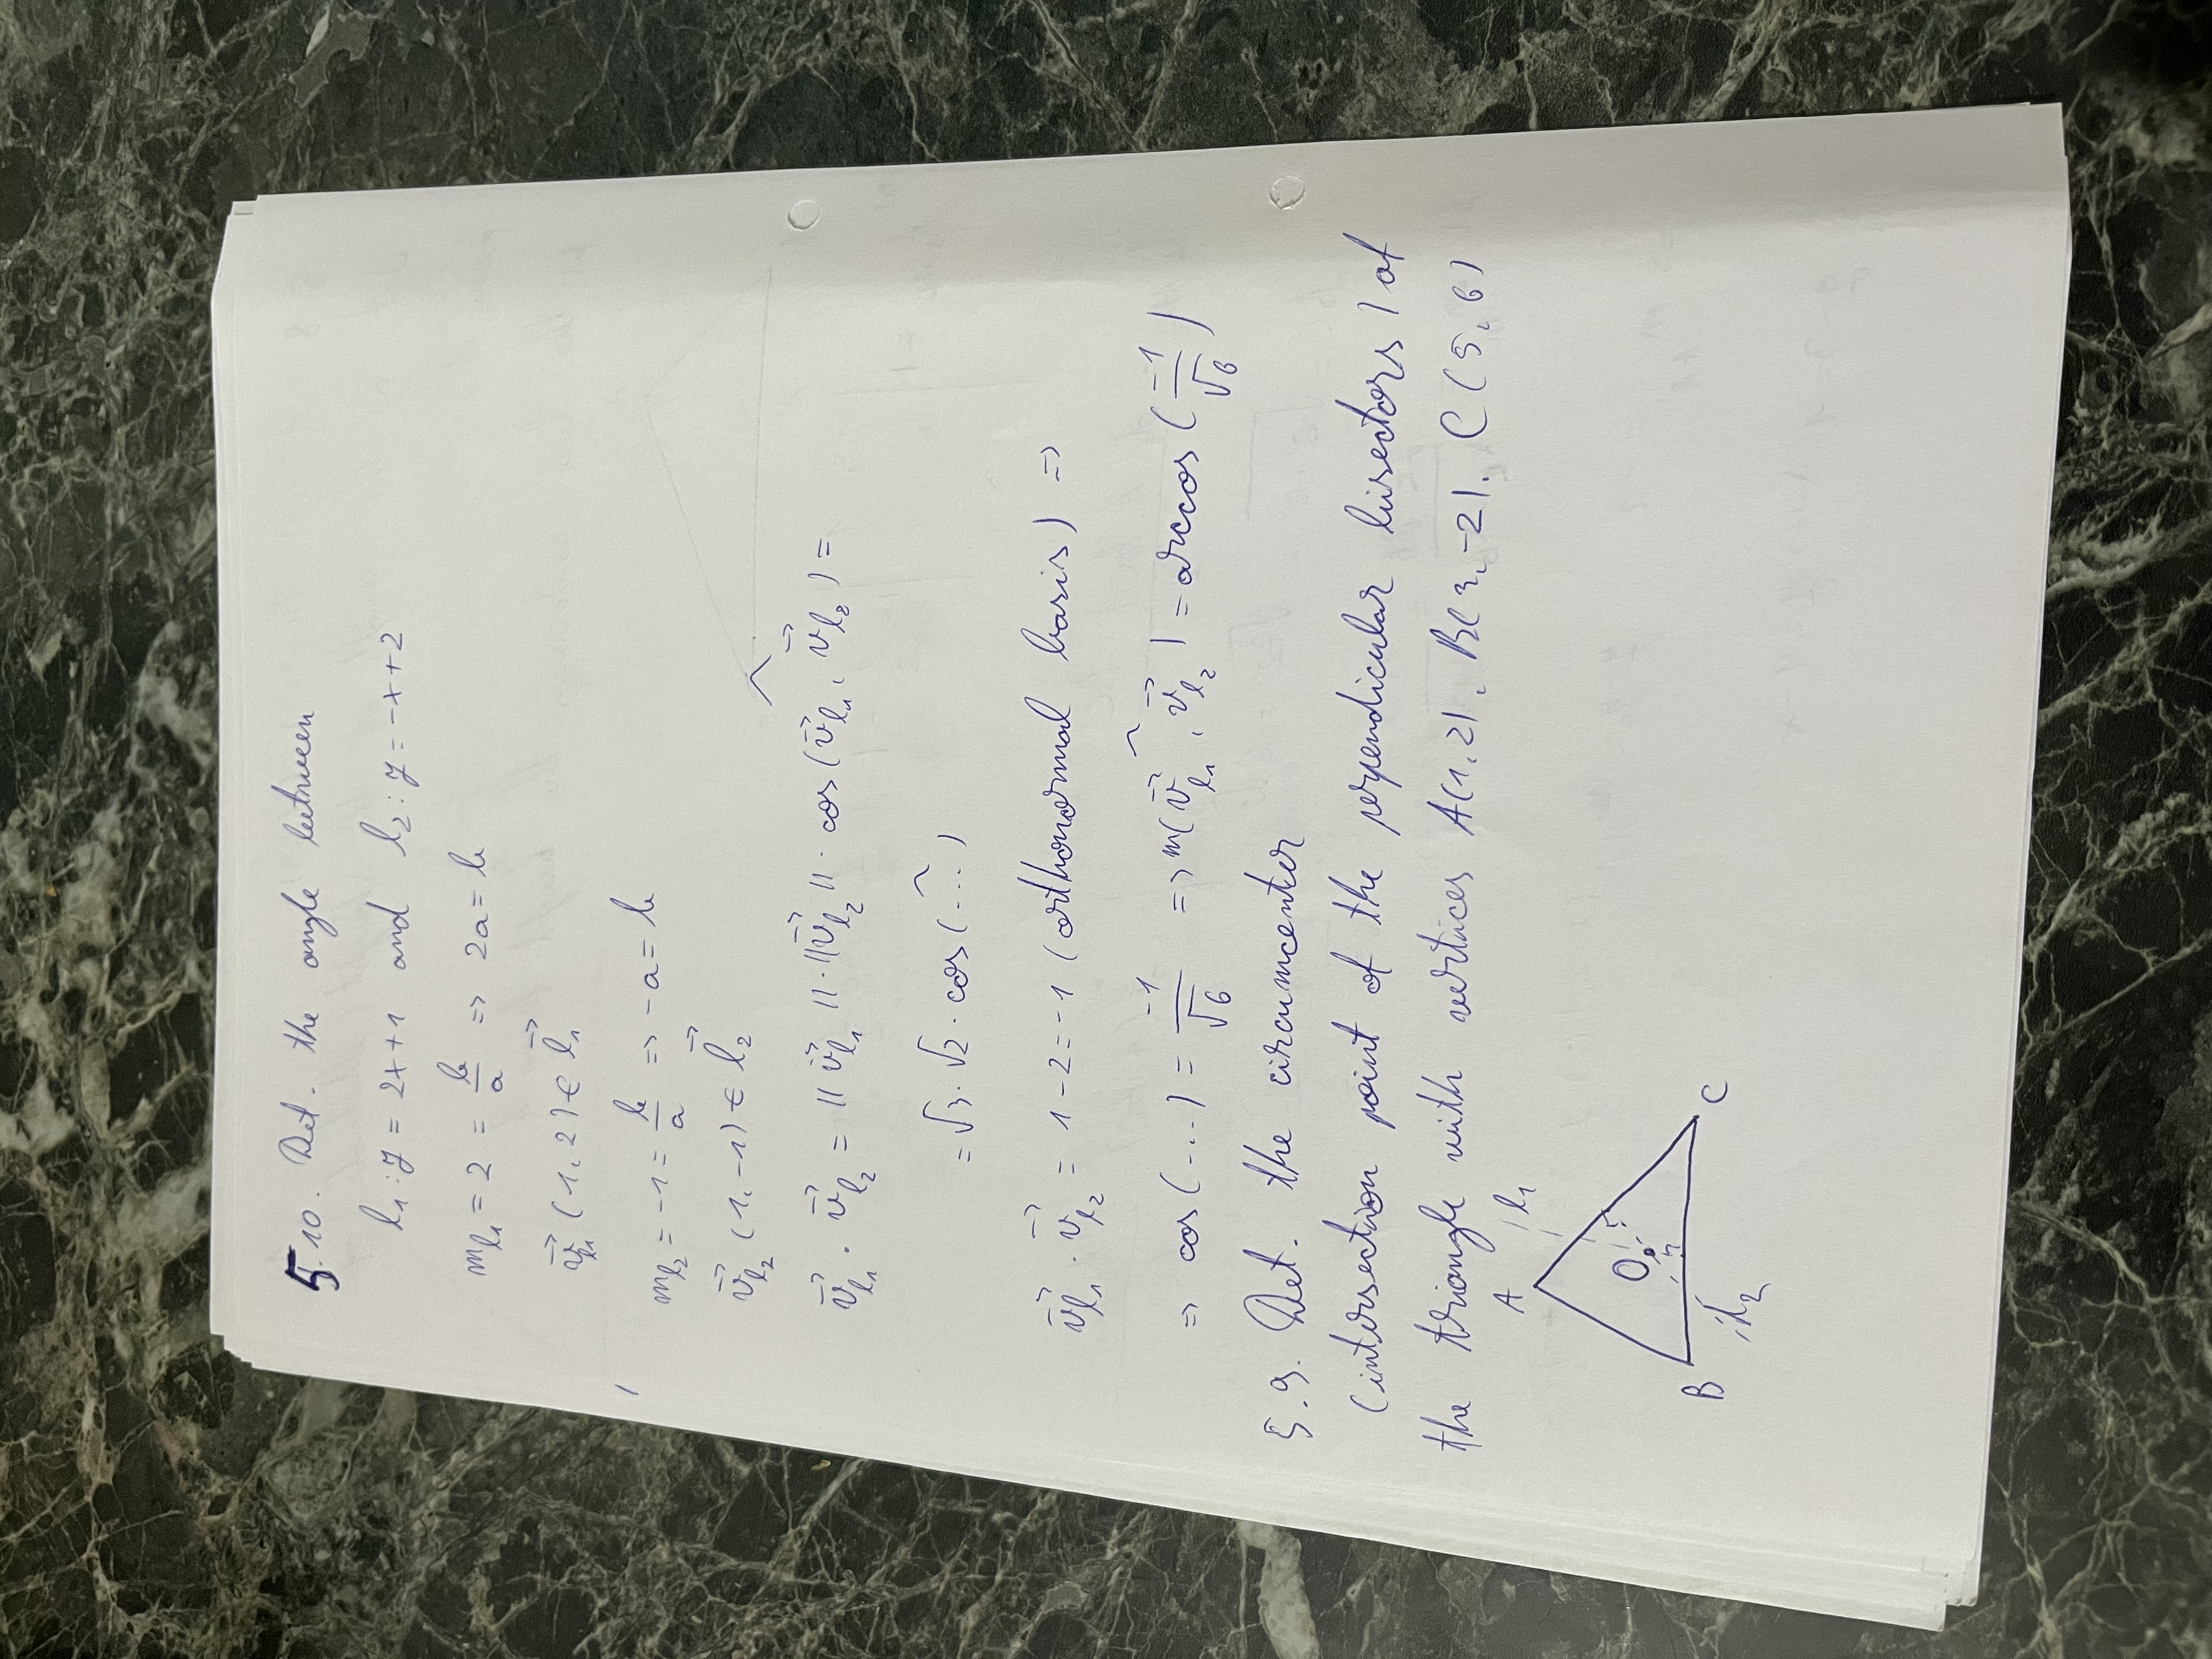 5.10. Det. the angle between
l₁: y = 2x+1 and l₂: y = -x+2
m_l₁ = 2 = b/a => 2a = b
v⃗_l₁ (1, 2) ∈ l⃗₁
m_l₂ = -1 = b/a => -a = b
v⃗_l₂ (1, -1) ∈ l⃗₂
v⃗_l₁ · v⃗_l₂ = ||v⃗_l₁|| · ||v⃗_l₂|| · cos(v⃗_l₁, v⃗_l₂) =
= √3 · √2 · cos(...)
v⃗_l₁ · v⃗_l₂ = 1-2 = -1 (orthonormal basis) =>
=> cos(...) = -1/√6 => m(v⃗_l₁, v⃗_l₂) = arccos(-1/√6)
5.9. Det. the circumcenter
(intersection point of the perpendicular bisectors) of
the triangle with vertices A(1,2), B(3,-2), C(5,6)
A l₁
O
B C
l₂